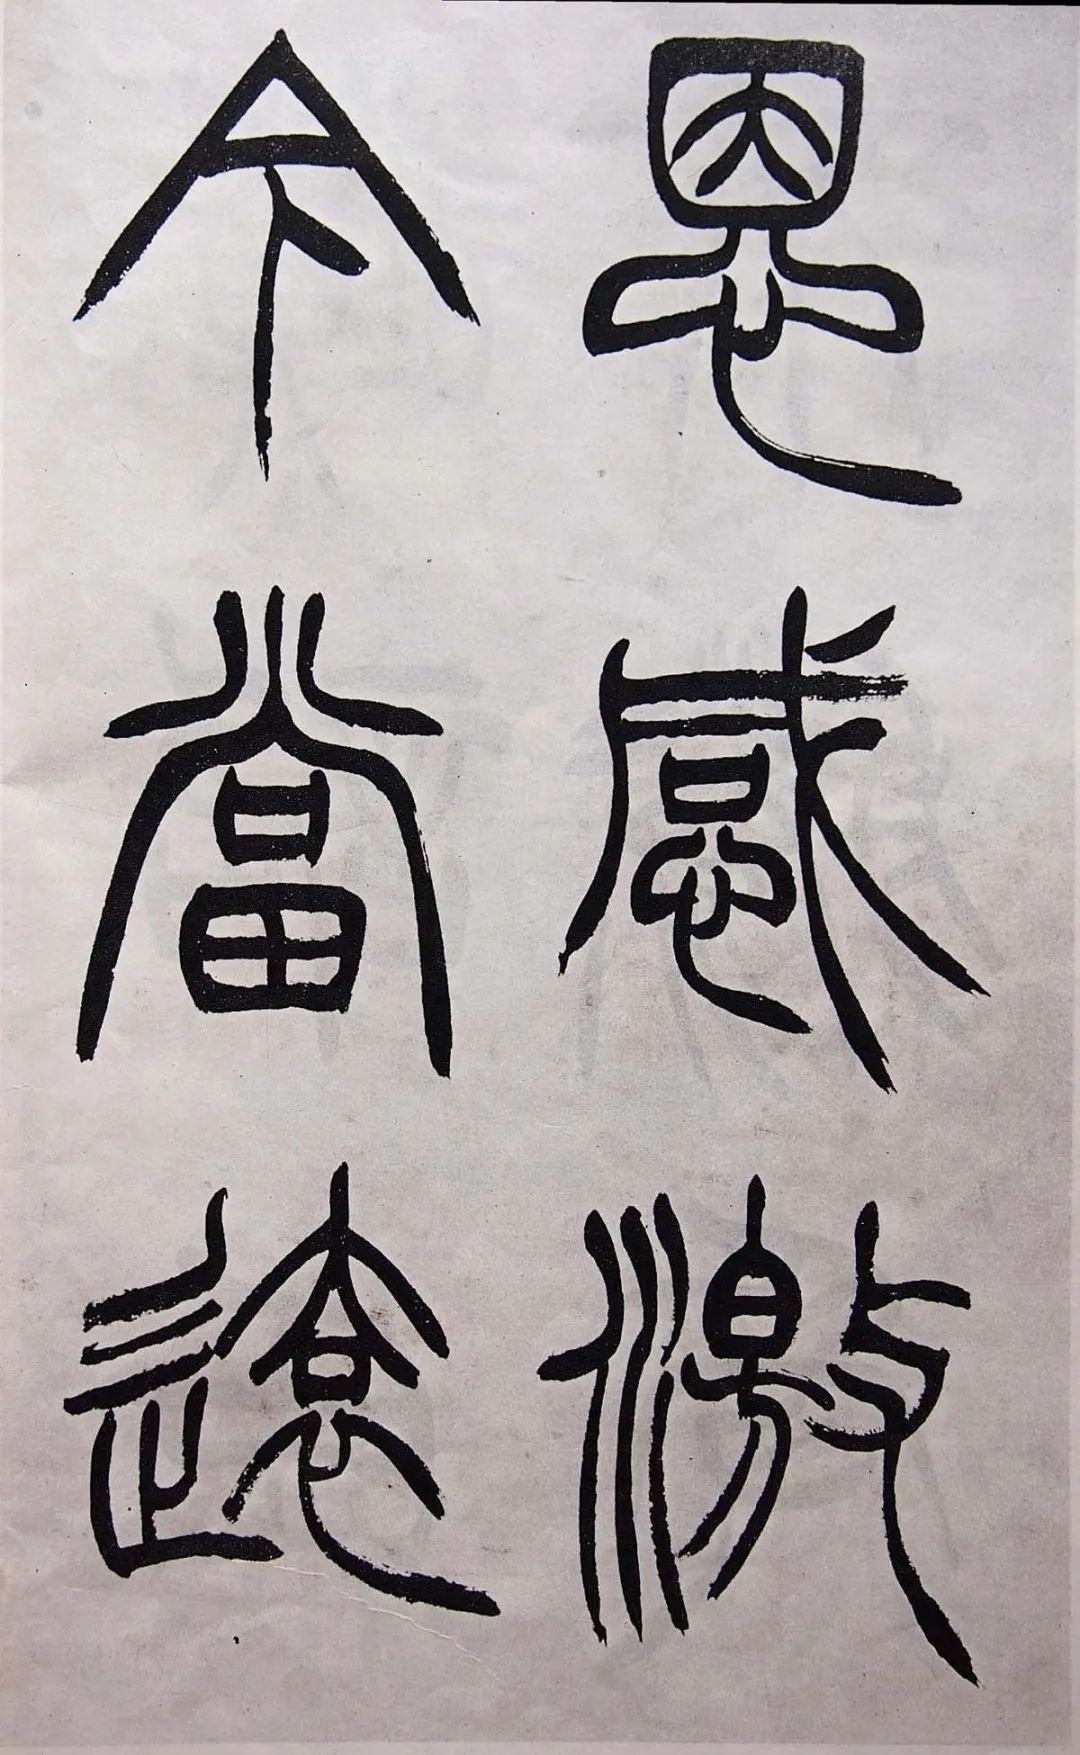 恩感激
今當遠